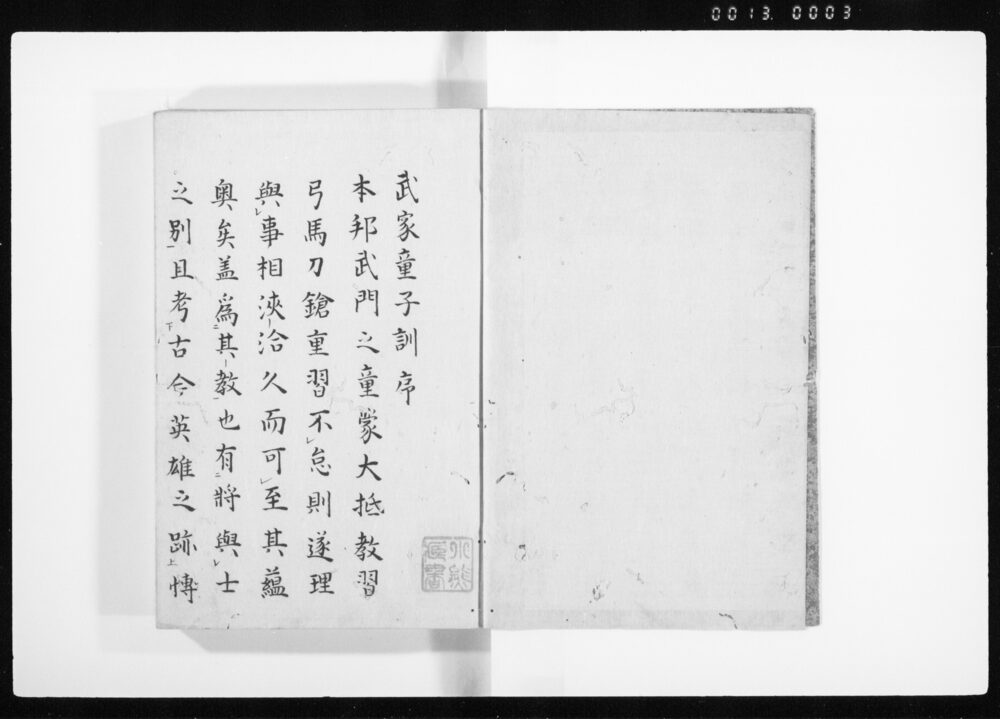 0013. 0003
武家童子訓序
本邦武門之童蒙大抵教習
弓馬刀鎗重習不㆑怠則遂理
與㆑事相浹-洽久而可㆑至其蘊
奥矣盖爲㆓其-教㆒也有㆓將與㆑士
之別㆒且考㆘古今英雄之跡㆖愽